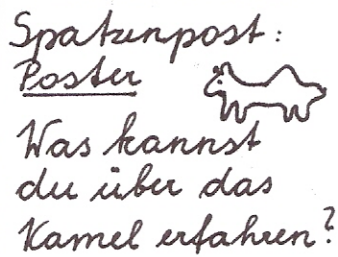 Spatzenpost:
Poster
Was kannst
du über das
Kamel erfahren?